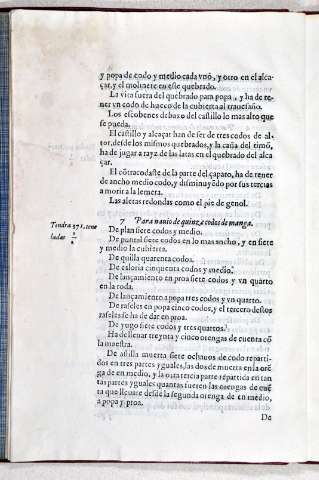 y popa de codo y medio cada vno, y otro en el alca-
çar, y el molinete en este quebrado.
La vita fuera del quebrado para popa, y ha de te-
ner vn codo de hueco de la cubierta al trauesaño.
Los escobenes debaxo del castillo lo mas alto que
se pueda.
El castillo y alcaçar han de ser de tres codos de al-
tor, desde los mismos quebrados, y la caña del timõ,
ha de jugar a rayz de las latas en el quebrado del alca
çar.
El cõtracodaste de la parte del çapato, ha de tener
de ancho medio codo, y disminuyẽdo por sus tercias
a morir a la lemera.
Las aletas redondas como el pie de genol.
7 Para nauio de quinze codos de manga.
Tendra 371. tone
ladas
De plan siete codos y medio.
De puntal siete codos en lo mas ancho, y en siete
y medio la cubierta.
De quilla quarenta codos.
De esloria cinquenta codos y medio.
De lançamiento en proa siete codos y vn quarto
en la roda.
De lançamiento a popa tres codos y vn quarto.
De raseles en popa cinco codos, y el tercero destos
raseles se ha de dar en proa.
De yugo siete codos y tres quartos.
Ha de lleuar treynta y cinco orengas de cuenta cõ
la maestra.
De astilla muerta siete ochauos de codo reparti-
dos en tres partes yguales, las dos de muerta en la orẽ
ga de en medio, y la otra tercia parte repartida en tan
tas partes yguales quantas fueren las orengas de cuẽ
ta que lleuare desde la segunda orenga de en medio,
a popa y proa.
De